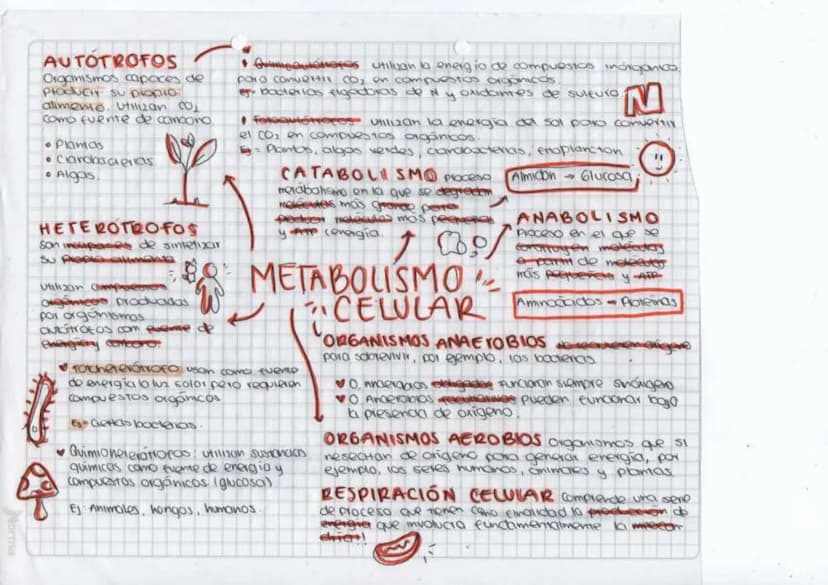 AUTÓTROFOS
Organismos capaces de
producir su propio
alimento. Utilizan CO₂
como fuente de carbono.
• Plantas
• Cianobacterias
• Algas.
• Quimioautótrofos utilizan la energía de compuestos inorgánicos
para convertir CO₂ en compuestos orgánicos.
Ej- bacterias fijadoras de N y oxidantes de sulfuro
N
• Fotoautótrofos utilizan la energía del sol para convertir
el CO₂ en compuestos orgánicos.
Ej = Plantas, algas verdes, cianobacterias, fitoplancton.
CATABOLISMO proceso
metabolismo en la que se degradan
moléculas más grande para
producir moléculas más pequeñas
y ATP (energía.
Almidón → Glucosa
ANABOLISMO
Proceso en el que se
construyen moléculas
a partir de moléculas
más pequeñas y ATP
Aminoácidos → Proteínas
HETERÓTROFOS
son incapaces de sintetizar
su propio alimento
Utilizan compuestos
orgánicos producidos
por organismos
autótrofos com fuente de
energía y carbono.
METABOLISMO
CELULAR
♥ Fotoheterótrofo usan como fuente
de energía la luz solar pero requieren
compuestos orgánicos
Ej- Ciertas bacterias.
♥ Quimioheterótrofos: utilizan sustancias
químicas como fuente de energía y
compuestos orgánicos (glucosa)
Ej Animales, hongos, humanos.
ORGANISMOS ANAEROBIOS no requieren oxígeno
para sobrevivir, por ejemplo, las bacterias.
♥ O. Anaerobios obligados funcionan siempre sin oxígeno
♥ O. Anaerobios facultativos pueden funcionar bajo
la presencia de oxígeno.
ORGANISMOS AEROBIOS organismos que si
nesecitan de oxígeno para generar energía, por
ejemplo, los seres humanos, animales y plantas
RESPIRACIÓN CELULAR comprende una serie
de proceso que tienen como finalidad la producción de
energía que involucra fundamentalmente la
Norma